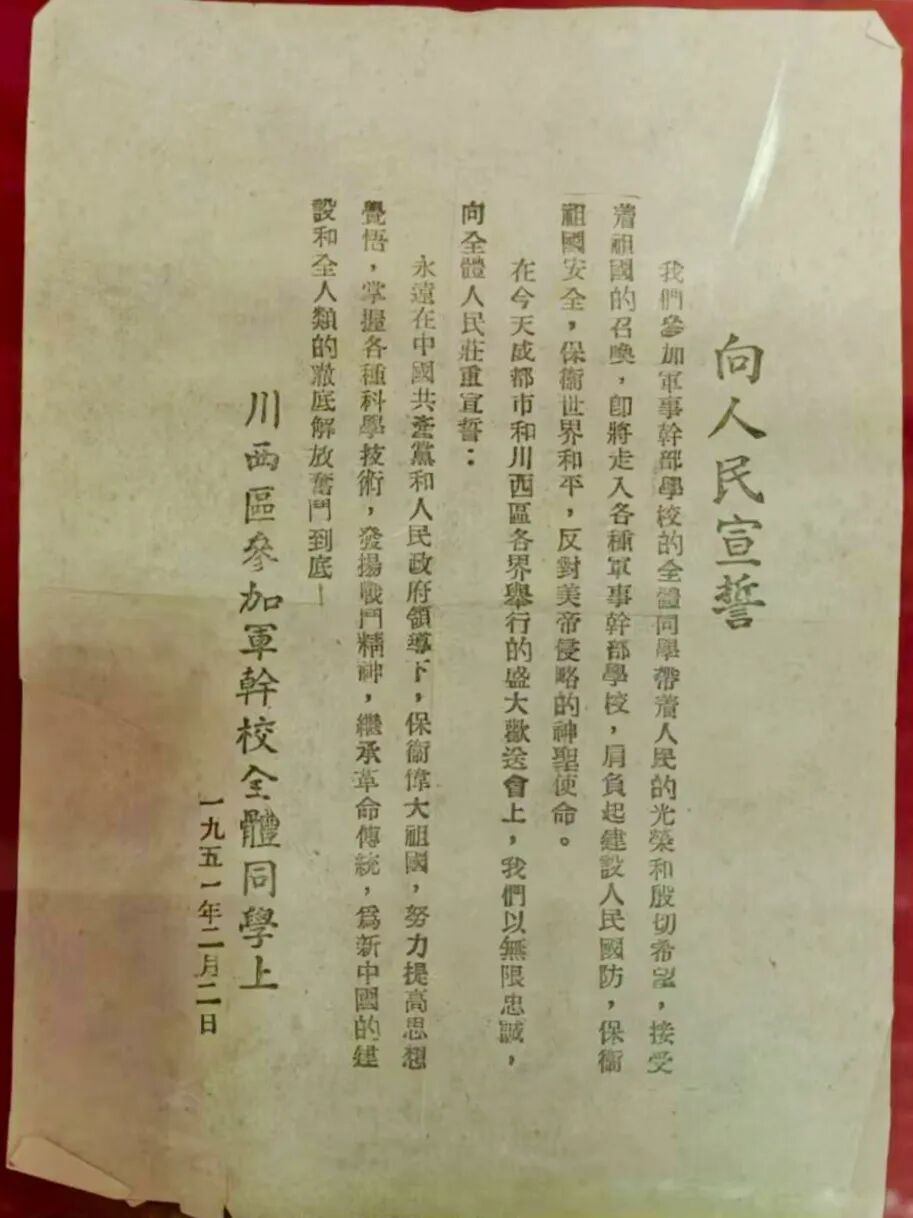 向人民宣誓
我們參加軍事幹部學校的全體同學帶着人民的光榮和殷切希望，接受
着祖國的召喚，卽將走入各種軍事幹部學校，肩負起建設人民國防，保衞
祖國安全，保衞世界和平，反對美帝侵略的神聖使命。
在今天成都市和川西區各界舉行的盛大歡送會上，我們以無限忠誠，
向全體人民莊重宣誓：
永遠在中國共產黨和人民政府領導下，保衞偉大祖國，努力提高思想
覺悟，掌握各種科學技術，發揚戰鬥精神，繼承革命傳統，爲新中國的建
設和全人類的澈底解放奮鬥到底！
川西區參加軍幹校全體同學上
一九五一年二月二日